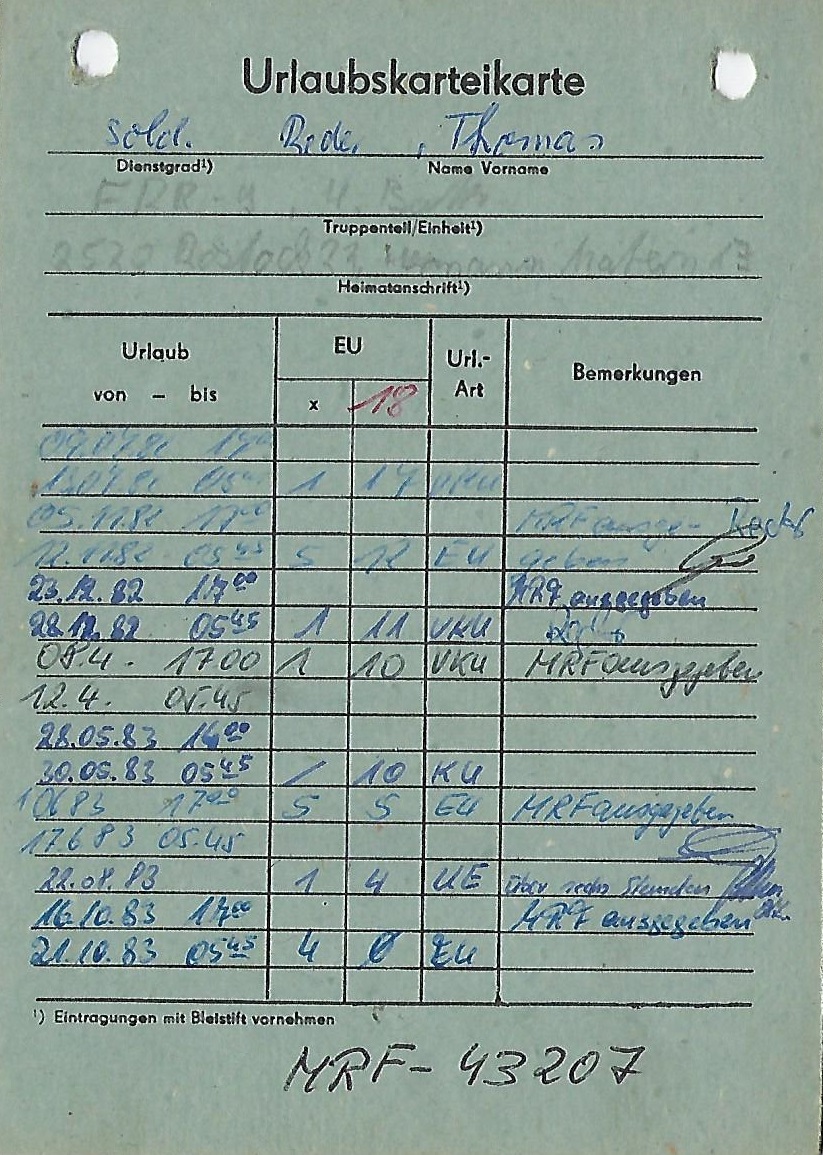 Urlaubskarteikarte
Sold. , Thomas
Dienstgrad¹) Name Vorname
Truppenteil/Einheit¹)
2520 Rostock 22, 13
Heimatanschrift¹)
Urlaub von – bis EU x 18 Url.-Art Bemerkungen
09.07.82 17⁰⁰
13.07.82 05⁴⁵ 1 17 VKU
05.11.82 17⁰⁰ MRF ausge-
12.11.82 05⁴⁵ 5 12 EU geben
23.12.82 17⁰⁰ MRF ausgegeben
28.12.82 05⁴⁵ 1 11 VKU
08.4. 17 00 1 10 VKU MRF ausgegeben
12.4. 05.45
28.05.83 16⁰⁰
30.05.83 05⁴⁵ / 10 KU
10 6 83 17⁰⁰ 5 5 EU MRF ausgegeben
17 6 83 05.45
1 4 UE über sechs Stunden
16.10.83 17⁰⁰ MRF ausgegeben
21.10.83 05⁴⁵ 4 0 EU
¹) Eintragungen mit Bleistift vornehmen
MRF - 43207